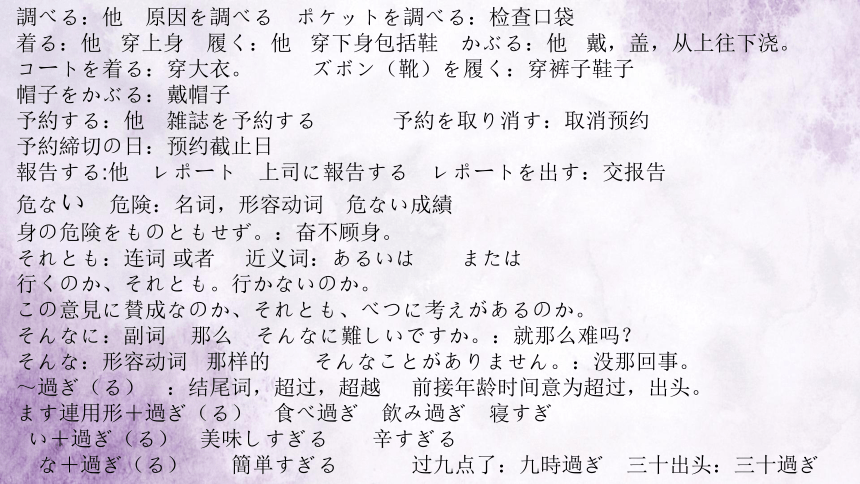 調べる：他　原因を調べる　ポケットを調べる：检查口袋
着る：他　穿上身　履く：他　穿下身包括鞋　かぶる：他　戴，盖，从上往下浇。
コートを着る：穿大衣。　　　ズボン（靴）を履く：穿裤子鞋子
帽子をかぶる：戴帽子
予約する：他　雑誌を予約する　　　　予約を取り消す：取消预约
予約締切の日：预约截止日
報告する:他　レポート　上司に報告する　レポートを出す：交报告
危ない　危険：名词，形容动词　危ない成績
身の危険をものともせず。：奋不顾身。
それとも：连词 或者　近义词：あるいは　　または
行くのか、それとも。行かないのか。
この意見に賛成なのか、それとも、べつに考えがあるのか。
そんなに：副词　那么　そんなに難しいですか。：就那么难吗？
そんな：形容动词　那样的　　そんなことがありません。：没那回事。
～過ぎ（る）　：结尾词，超过，超越　前接年龄时间意为超过，出头。
ます連用形＋過ぎ（る）　食べ過ぎ　飲み過ぎ　寝すぎ
い＋過ぎ（る）　美味しすぎる　　辛すぎる
な＋過ぎ（る）　　簡単すぎる　　　　过九点了：九時過ぎ　三十出头：三十過ぎ